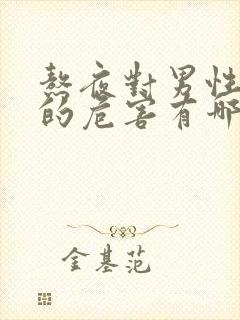 熬夜對男性
的危害有哪
金基范